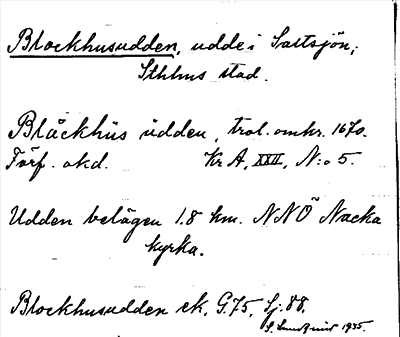 Blockhusudden, udde i Saltsjön,
Sthlms stad.
Blåckhüs üdden, trol. omkr. 1670.
Förf. okd. Kr A, XXII, N:o 5.
Udden belägen 1.8 km. NNÖ Nacka
kyrka.
Blockhusudden ek. G.75, Sj. 88.
S. 1935.